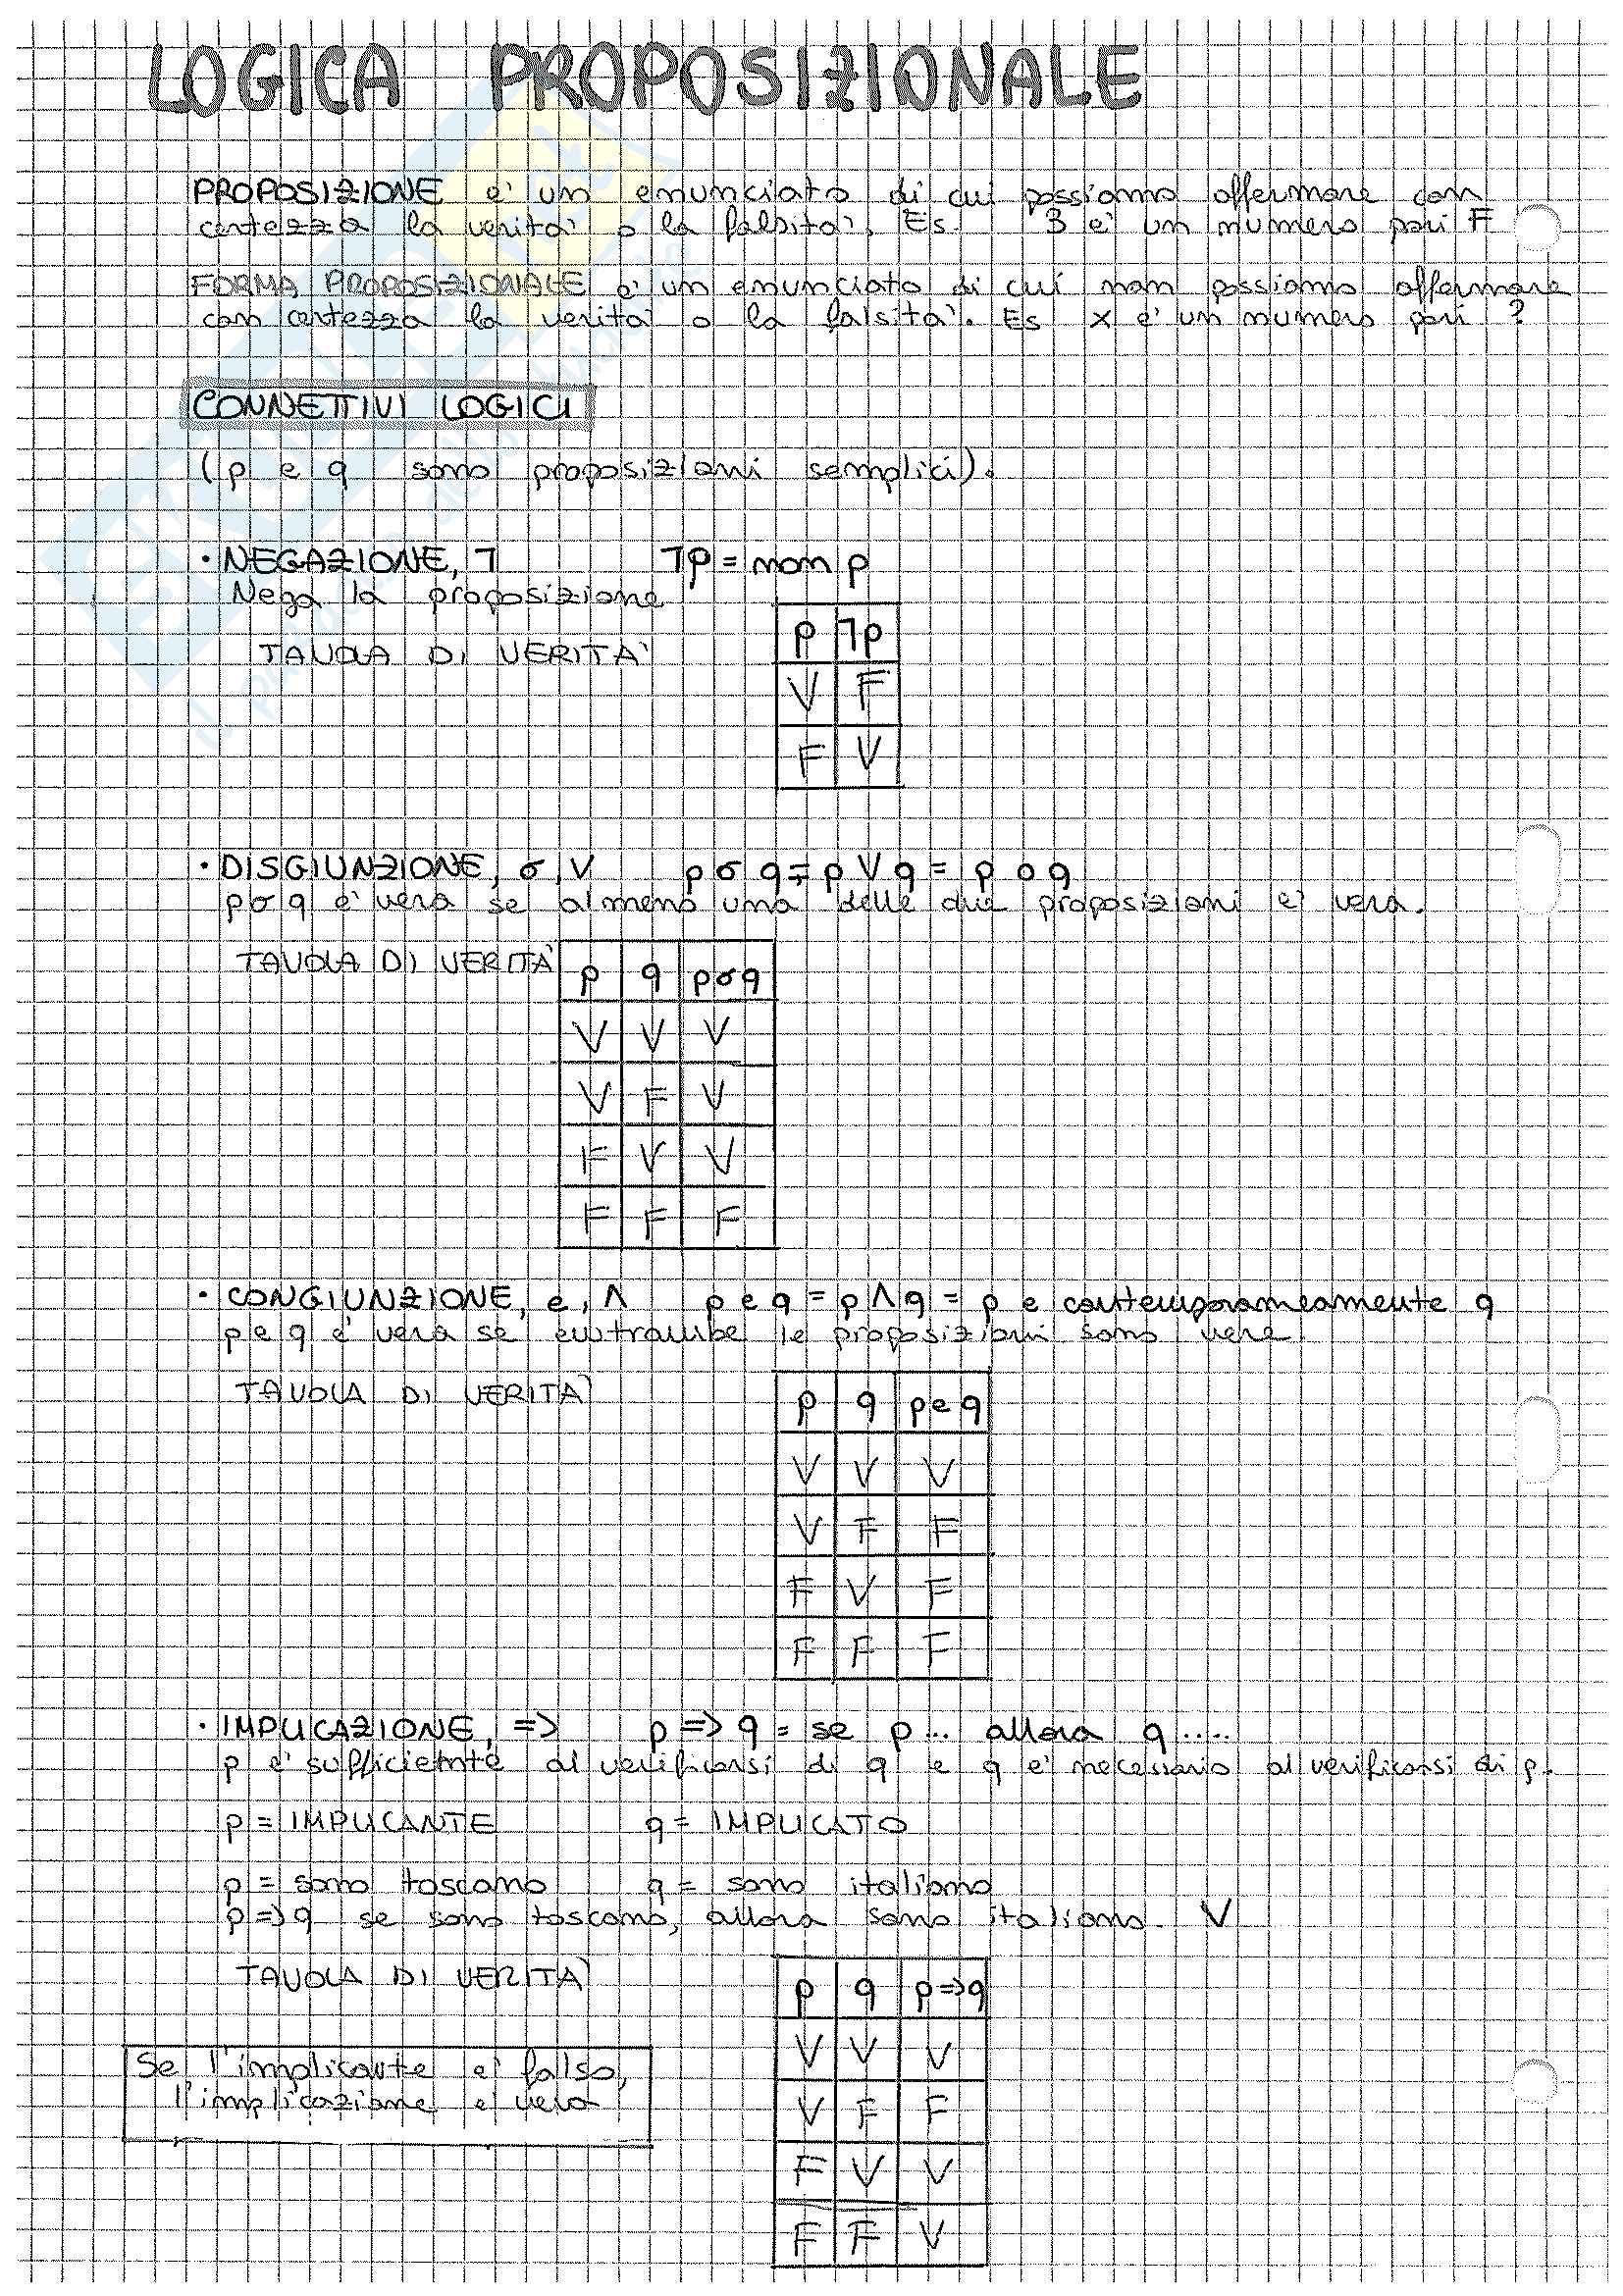 LOGICA PROPOSIZIONALE
PROPOSIZIONE e' un enunciato di cui possiamo affermare con
certezza la verita' o la falsita'. Es. 3 e' un numero pari F
FORMA PROPOSIZIONALE e' un enunciato di cui non possiamo affermare
con certezza la verita' o la falsita'. Es x e' un numero pari ?
CONNETTIVI LOGICI
(p e q sono proposizioni semplici).
• NEGAZIONE, ⅂ ⅂p = non p
Nega la proposizione
TAVOLA DI VERITA'
p ⅂p
V F
F V
• DISGIUNZIONE, o, V p o q = p V q = p o q
p o q e' vera se almeno una delle due proposizioni e' vera.
TAVOLA DI VERITA'
p q p o q
V V V
V F V
F V V
F F F
• CONGIUNZIONE, e, Λ p e q = p Λ q = p e contemporaneamente q
p e q e' vera se entrambe le proposizioni sono vere
TAVOLA DI VERITA'
p q p e q
V V V
V F F
F V F
F F F
• IMPLICAZIONE, => p => q = se p... allora q....
p e' sufficiente al verificarsi di q e q e' necessario al verificarsi di p.
p = IMPLICANTE q = IMPLICATO
p = sono toscano q = sono italiano
p => q se sono toscano, allora sono italiano. V
TAVOLA DI VERITA'
p q p=>q
V V V
V F F
F V V
F F V
Se l'implicante e' falso,
l'implicazione e' vera